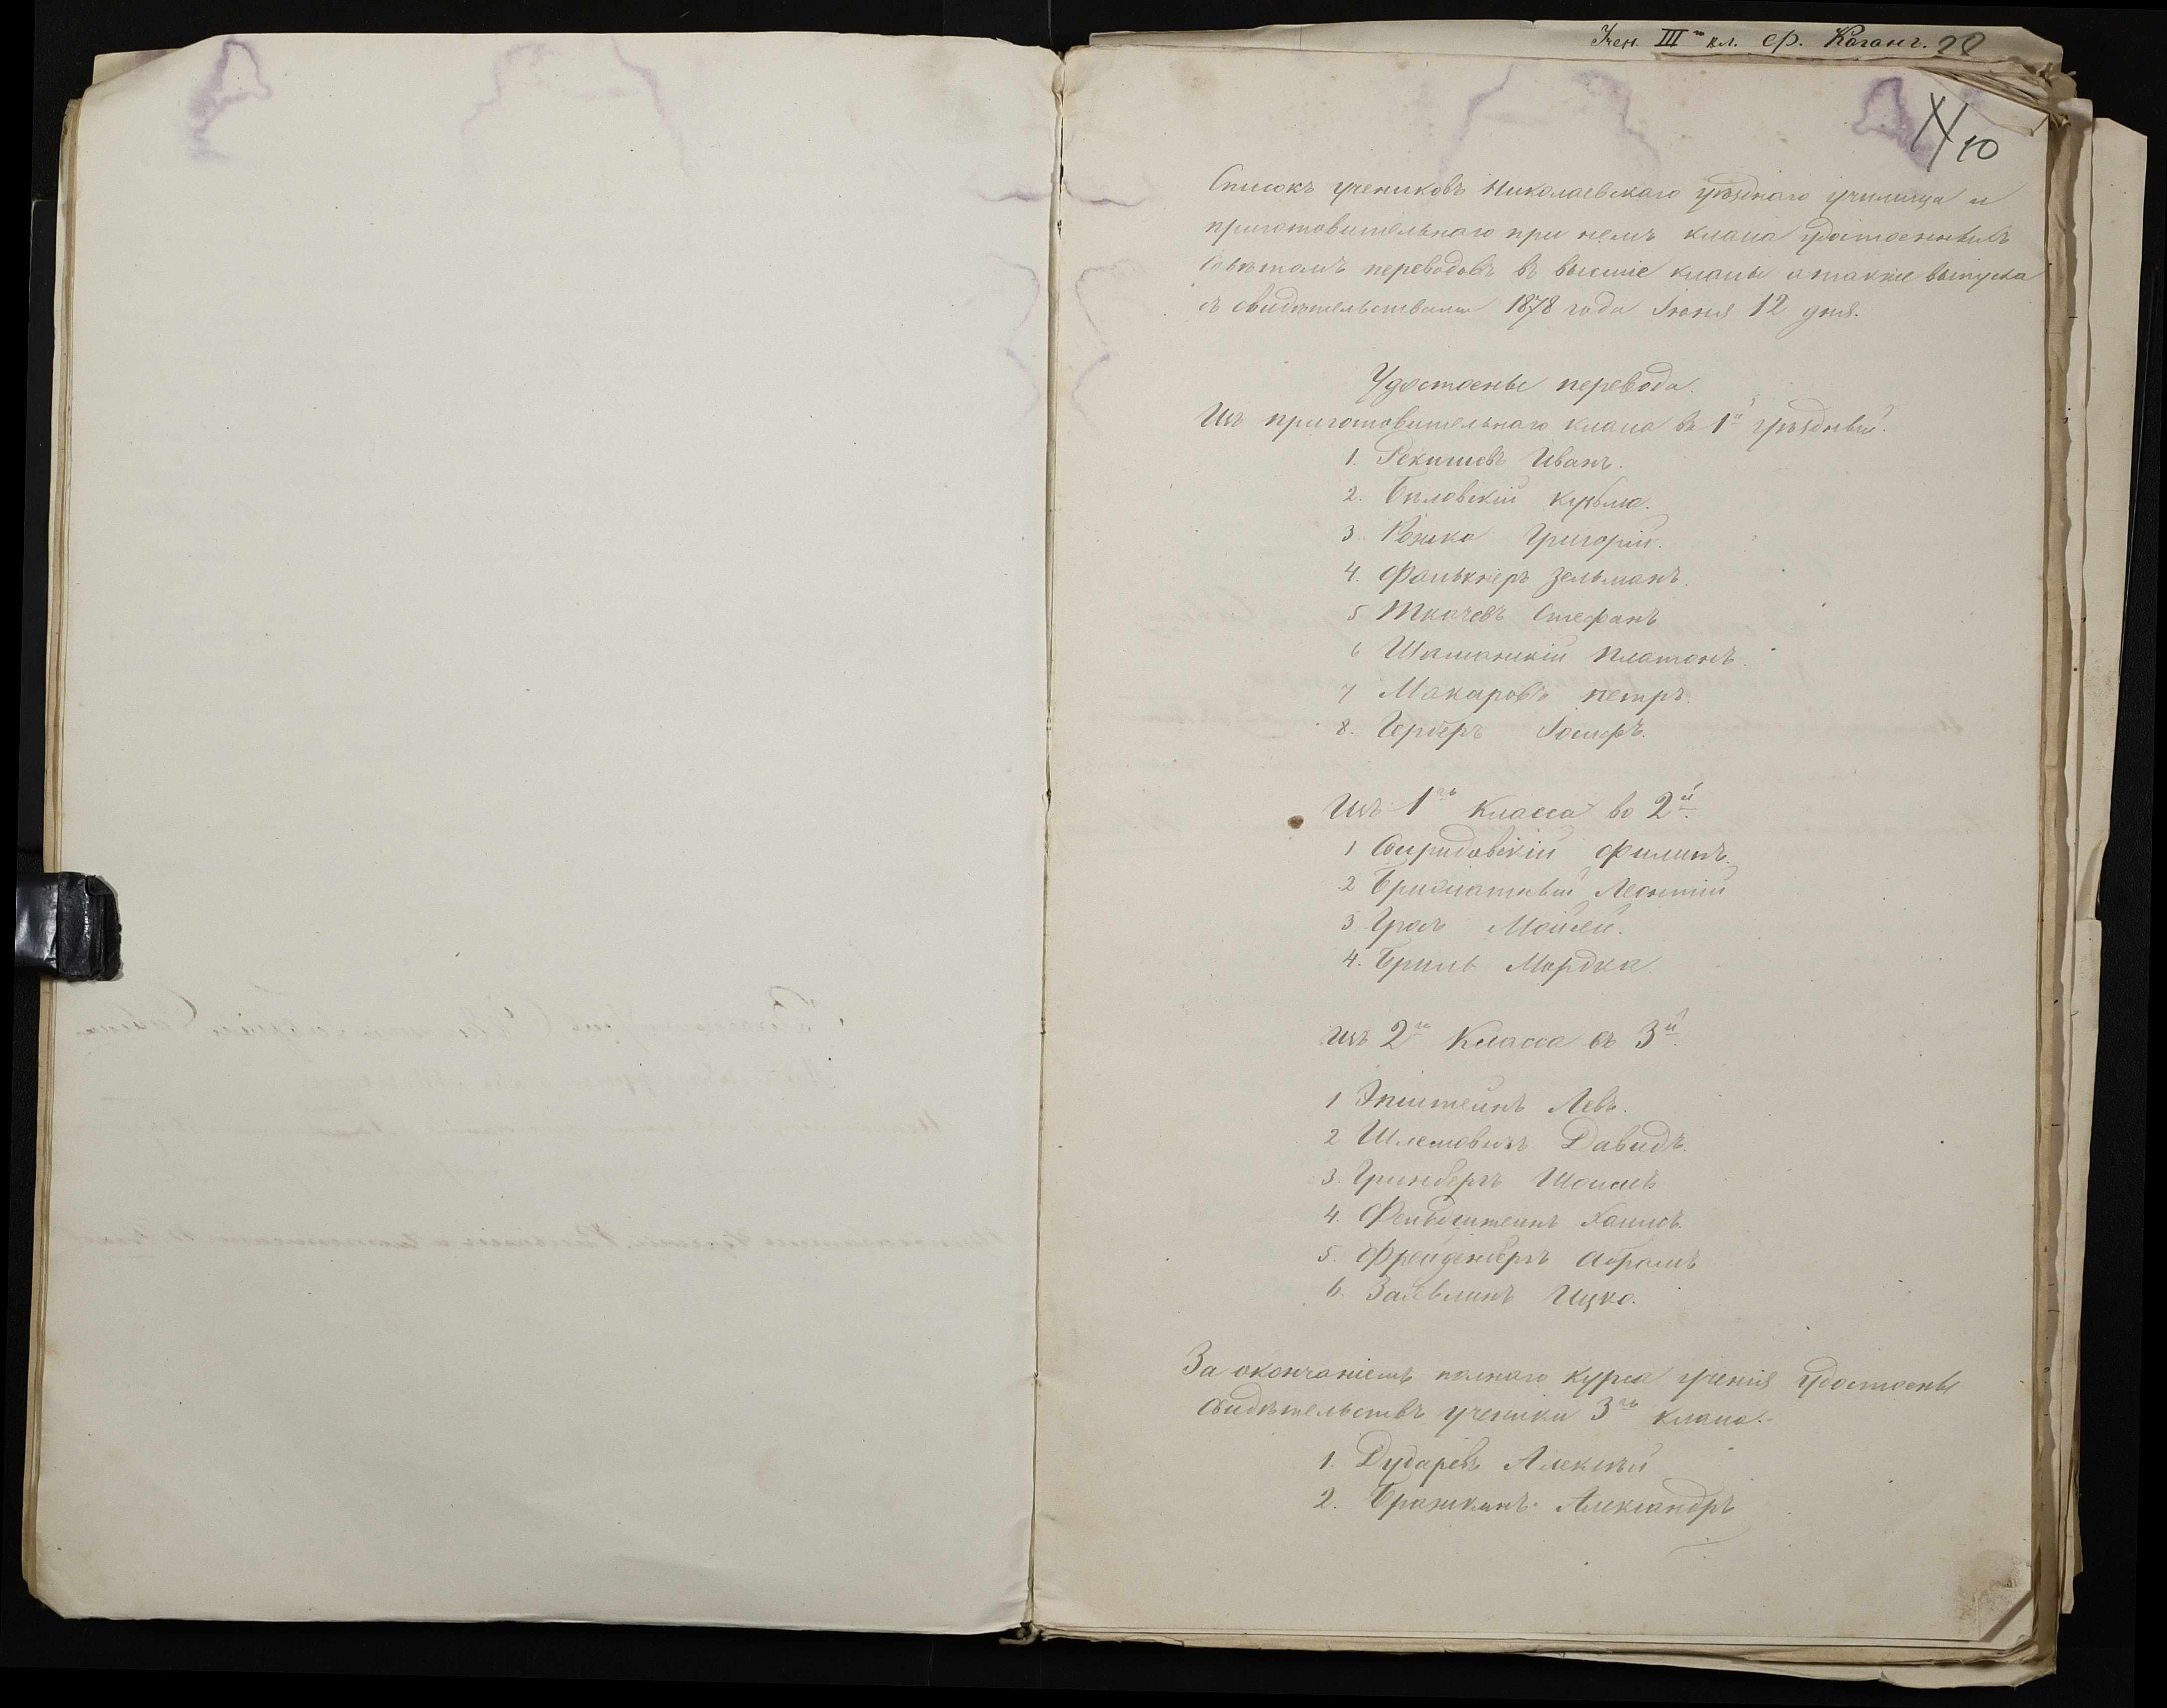 Учен. III го кл. Ф. Коганъ. 22
10
Списокъ учениковъ Николаевскаго уѣзднаго училища и
приготовительнаго при немъ класса удостоенныхъ
Совѣтомъ переводовъ въ высшіе классы а также выпуска
съ свидѣтельствами 1878 года Іюня 12 дня.
Удостоены перевода.
Изъ приготовительнаго класса въ 1й уѣздный.
1. Рекишевъ Иванъ.
2. Бѣловскій Кузьма.
3. Рожко Григорій.
4. Фалькнеръ Зельманъ.
5 Ткачевъ Стефанъ
6 Шаманскій Платонъ.
7 Макаровъ Петръ.
8. Герберъ Іосифъ.
Изъ 1го Класса во 2й.
1 Свиридовскій Филипъ.
2 Леонтій
3 Моисей.
4. Бриль Мордка.
Изъ 2го Класса въ 3й.
1 Эпштейнъ Левъ.
2 Шлемовичъ Давидъ.
3. Гринбергъ
4. Фельдштейнъ Хаимъ.
5. Фрейденбергъ Абрамъ
6. Ицко.
За окончаніемъ полнаго курса ученія удостоены
свидѣтельствъ ученики 3го класса.
1. Дударевъ Алексѣй
2. Бражкинъ Александръ